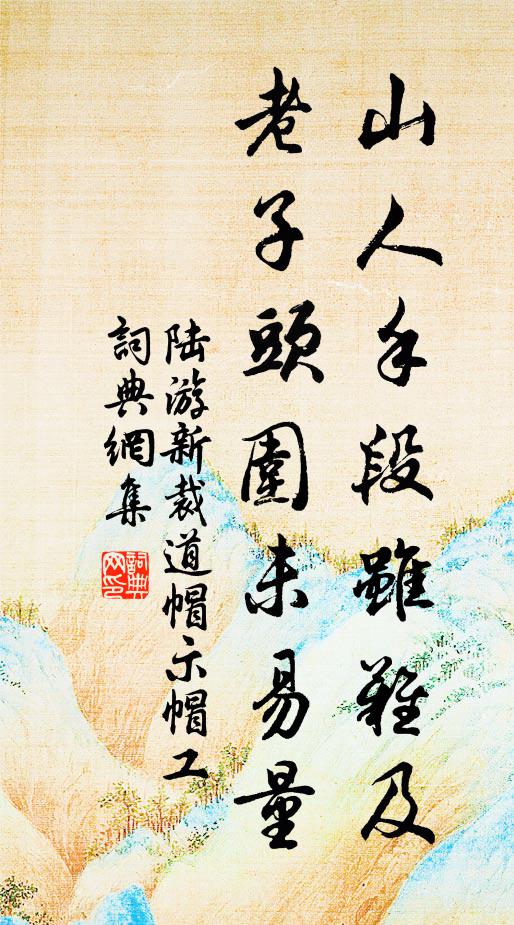 山人手段雖難及
老子頭圍未易量
陆游新裁道帽示帽工
詞典網集
詞典
网印